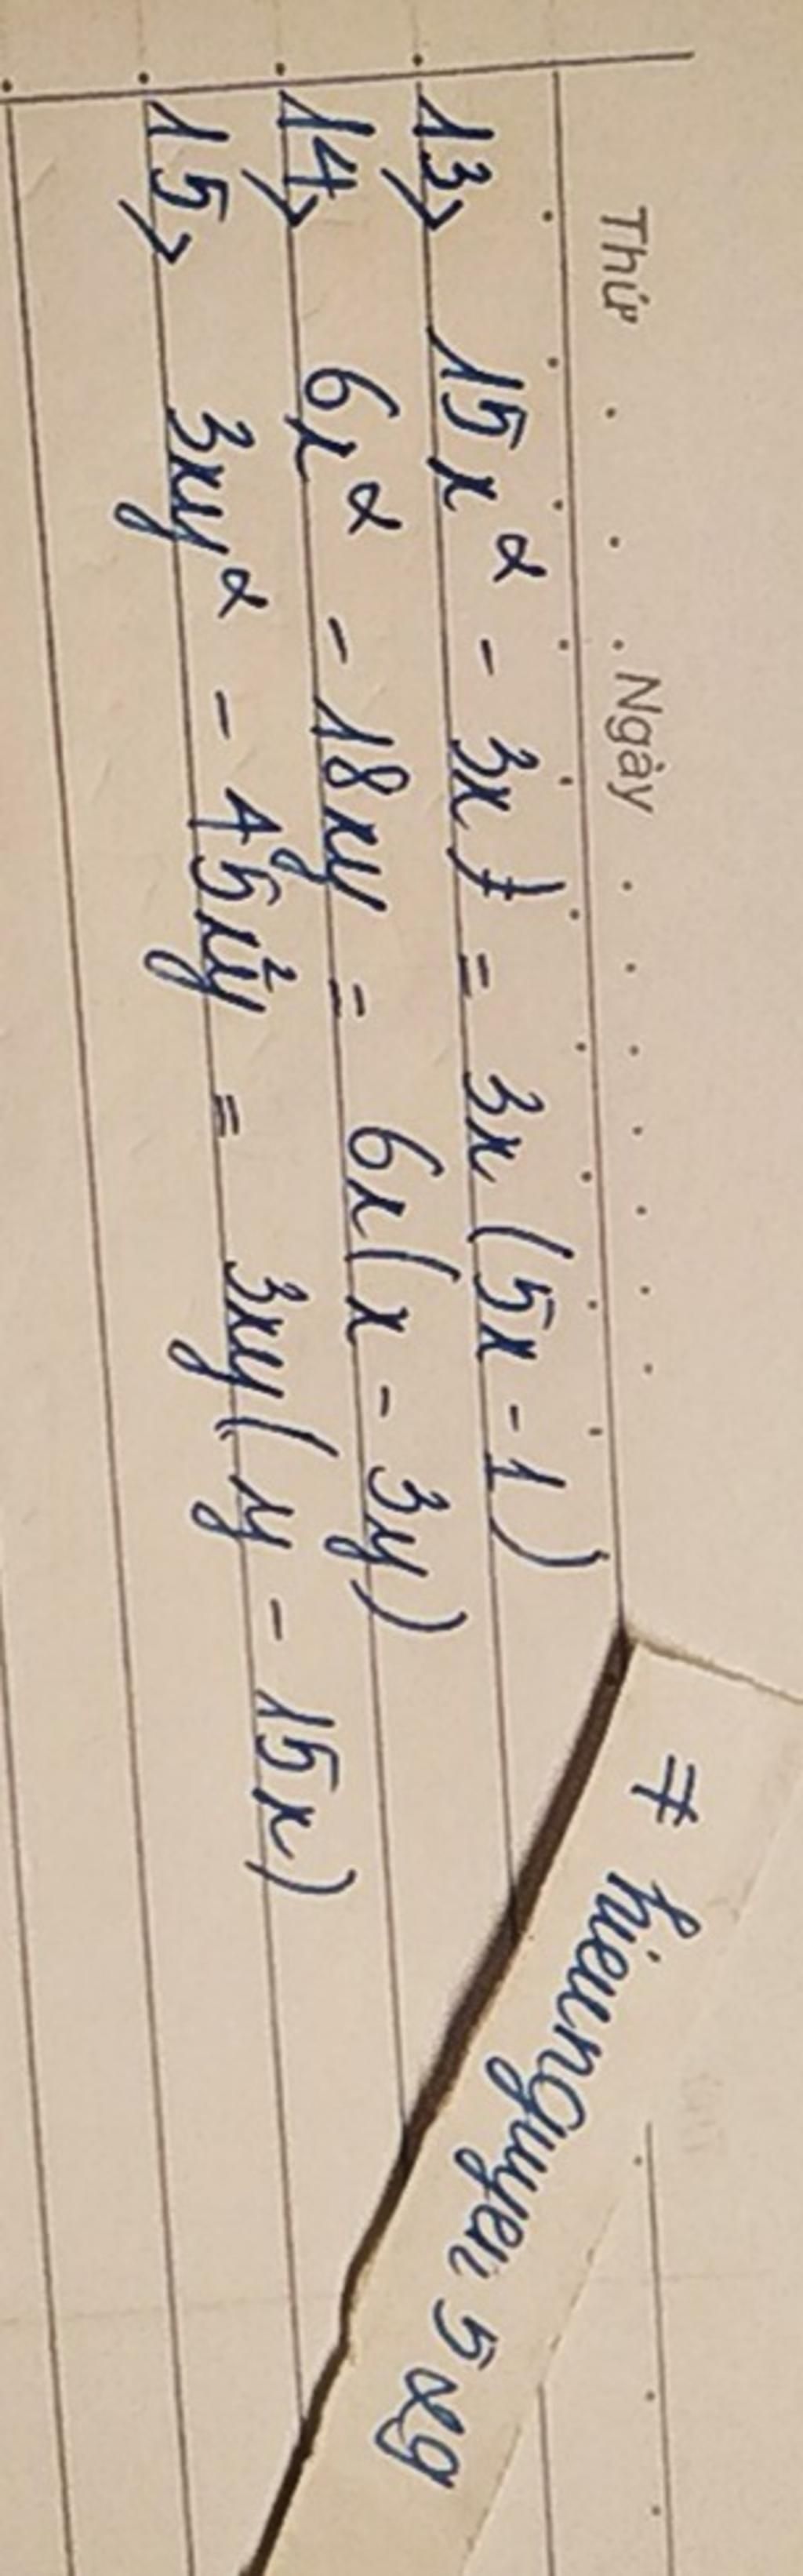 Thứ . . . Ngày . . . . . . .
13> 15x² - 3x = 3x (5x - 1)
14> 6x² - 18xy = 6x(x - 3y)
15> 3xy² - 45x²y = 3xy(y - 15x)
# hieunguyen 529